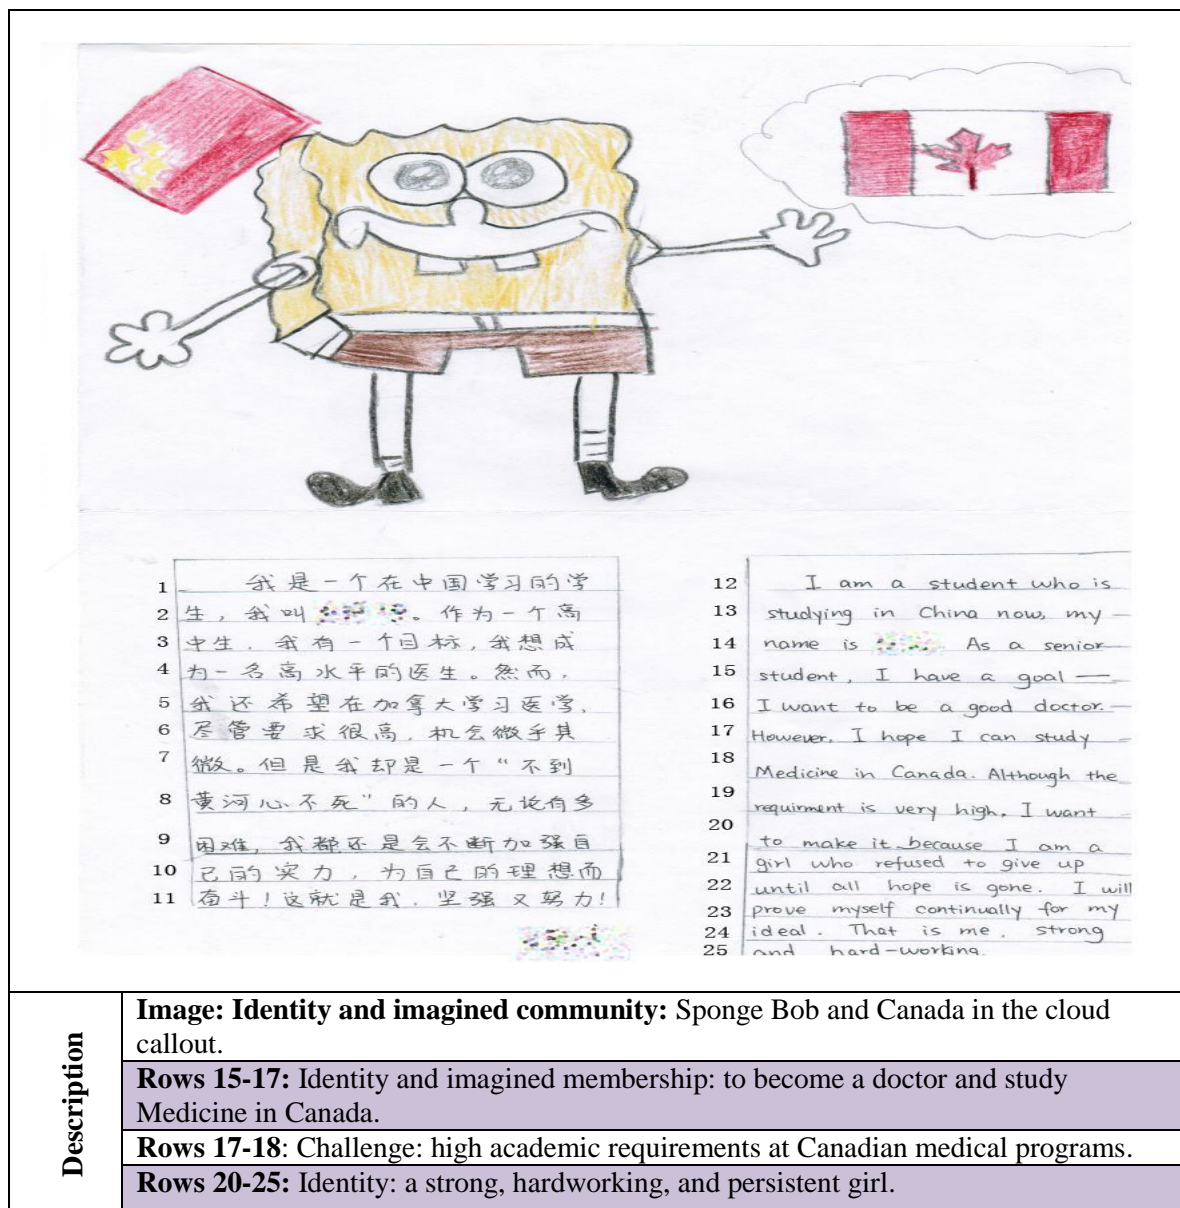 1 我是一个在中国学习的学
2 生，我叫。作为一个高
3 中生，我有一个目标，我想成
4 为一名高水平的医生。然而，
5 我还希望在加拿大学习医学，
6 尽管要求很高，机会微乎其
7 微。但是我却是一个“不到
8 黄河心不死”的人，无论有多
9 困难，我都还是会不断加强自
10 己的实力，为自己的理想而
11 奋斗！这就是我，坚强又努力！
12 I am a student who is
13 studying in China now, my
14 name is As a senior
15 student, I have a goal —
16 I want to be a good doctor.
17 However, I hope I can study
18 Medicine in Canada. Although the
19 requirment is very high, I want
20 to make it because I am a
21 girl who refused to give up
22 until all hope is gone. I will
23 prove myself continually for my
24 ideal. That is me, strong
25 and hard-working.
Description
Image: Identity and imagined community: Sponge Bob and Canada in the cloud
callout.
Rows 15-17: Identity and imagined membership: to become a doctor and study
Medicine in Canada.
Rows 17-18: Challenge: high academic requirements at Canadian medical programs.
Rows 20-25: Identity: a strong, hardworking, and persistent girl.